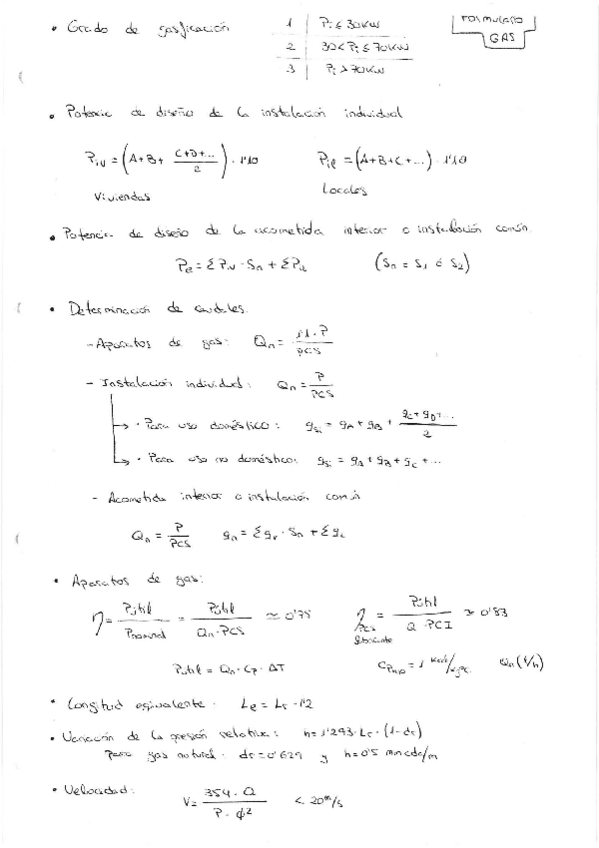 Formulario
GAS
• Grado de gasificación
1 | Pi ≤ 30 kW
2 | 30 < Pi ≤ 70 kW
3 | Pi > 70 kW
• Potencia de diseño de la instalación individual
Piv = (A+B+ (C+D+...)/2) · 1'10    Pil = (A+B+C+...) · 1'10
Viviendas    Locales
• Potencia de diseño de la acometida interior o instalación común
Pc = ΣPiv · Sn + ΣPil    (Sn = S1 ó S2)
• Determinación de caudales.
- Aparatos de gas: Qn = 1'1 · P / PCS
- Instalación individual: Qn = P / PCS
→ · Para uso doméstico: qsi = qA + qB + (qC + qD + ...)/2
→ · Para uso no doméstico: qsi = qA + qB + qC + ...
- Acometida interior o instalación común
Qn = P / PCS    qn = Σqv · Sn + ΣqL
• Aparatos de gas:
η = Pútil / Pnominal = Pútil / (Qn · PCS) ≈ 0'75    η = Pútil / (Q · PCI) ≈ 0'83
Pútil = Qn · Cp · ΔT    = 1    Qn (l/h)
• Longitud equivalente: Le = Lr · 1'2
• Variación de la presión relativa: h = 1'293 · Lr · (1-dr)
Para gas natural: dr = 0'629 y h = 0'5 mmcda/m
• Velocidad: V = 354 · Q / (P · ϕ²) < 20 m/s